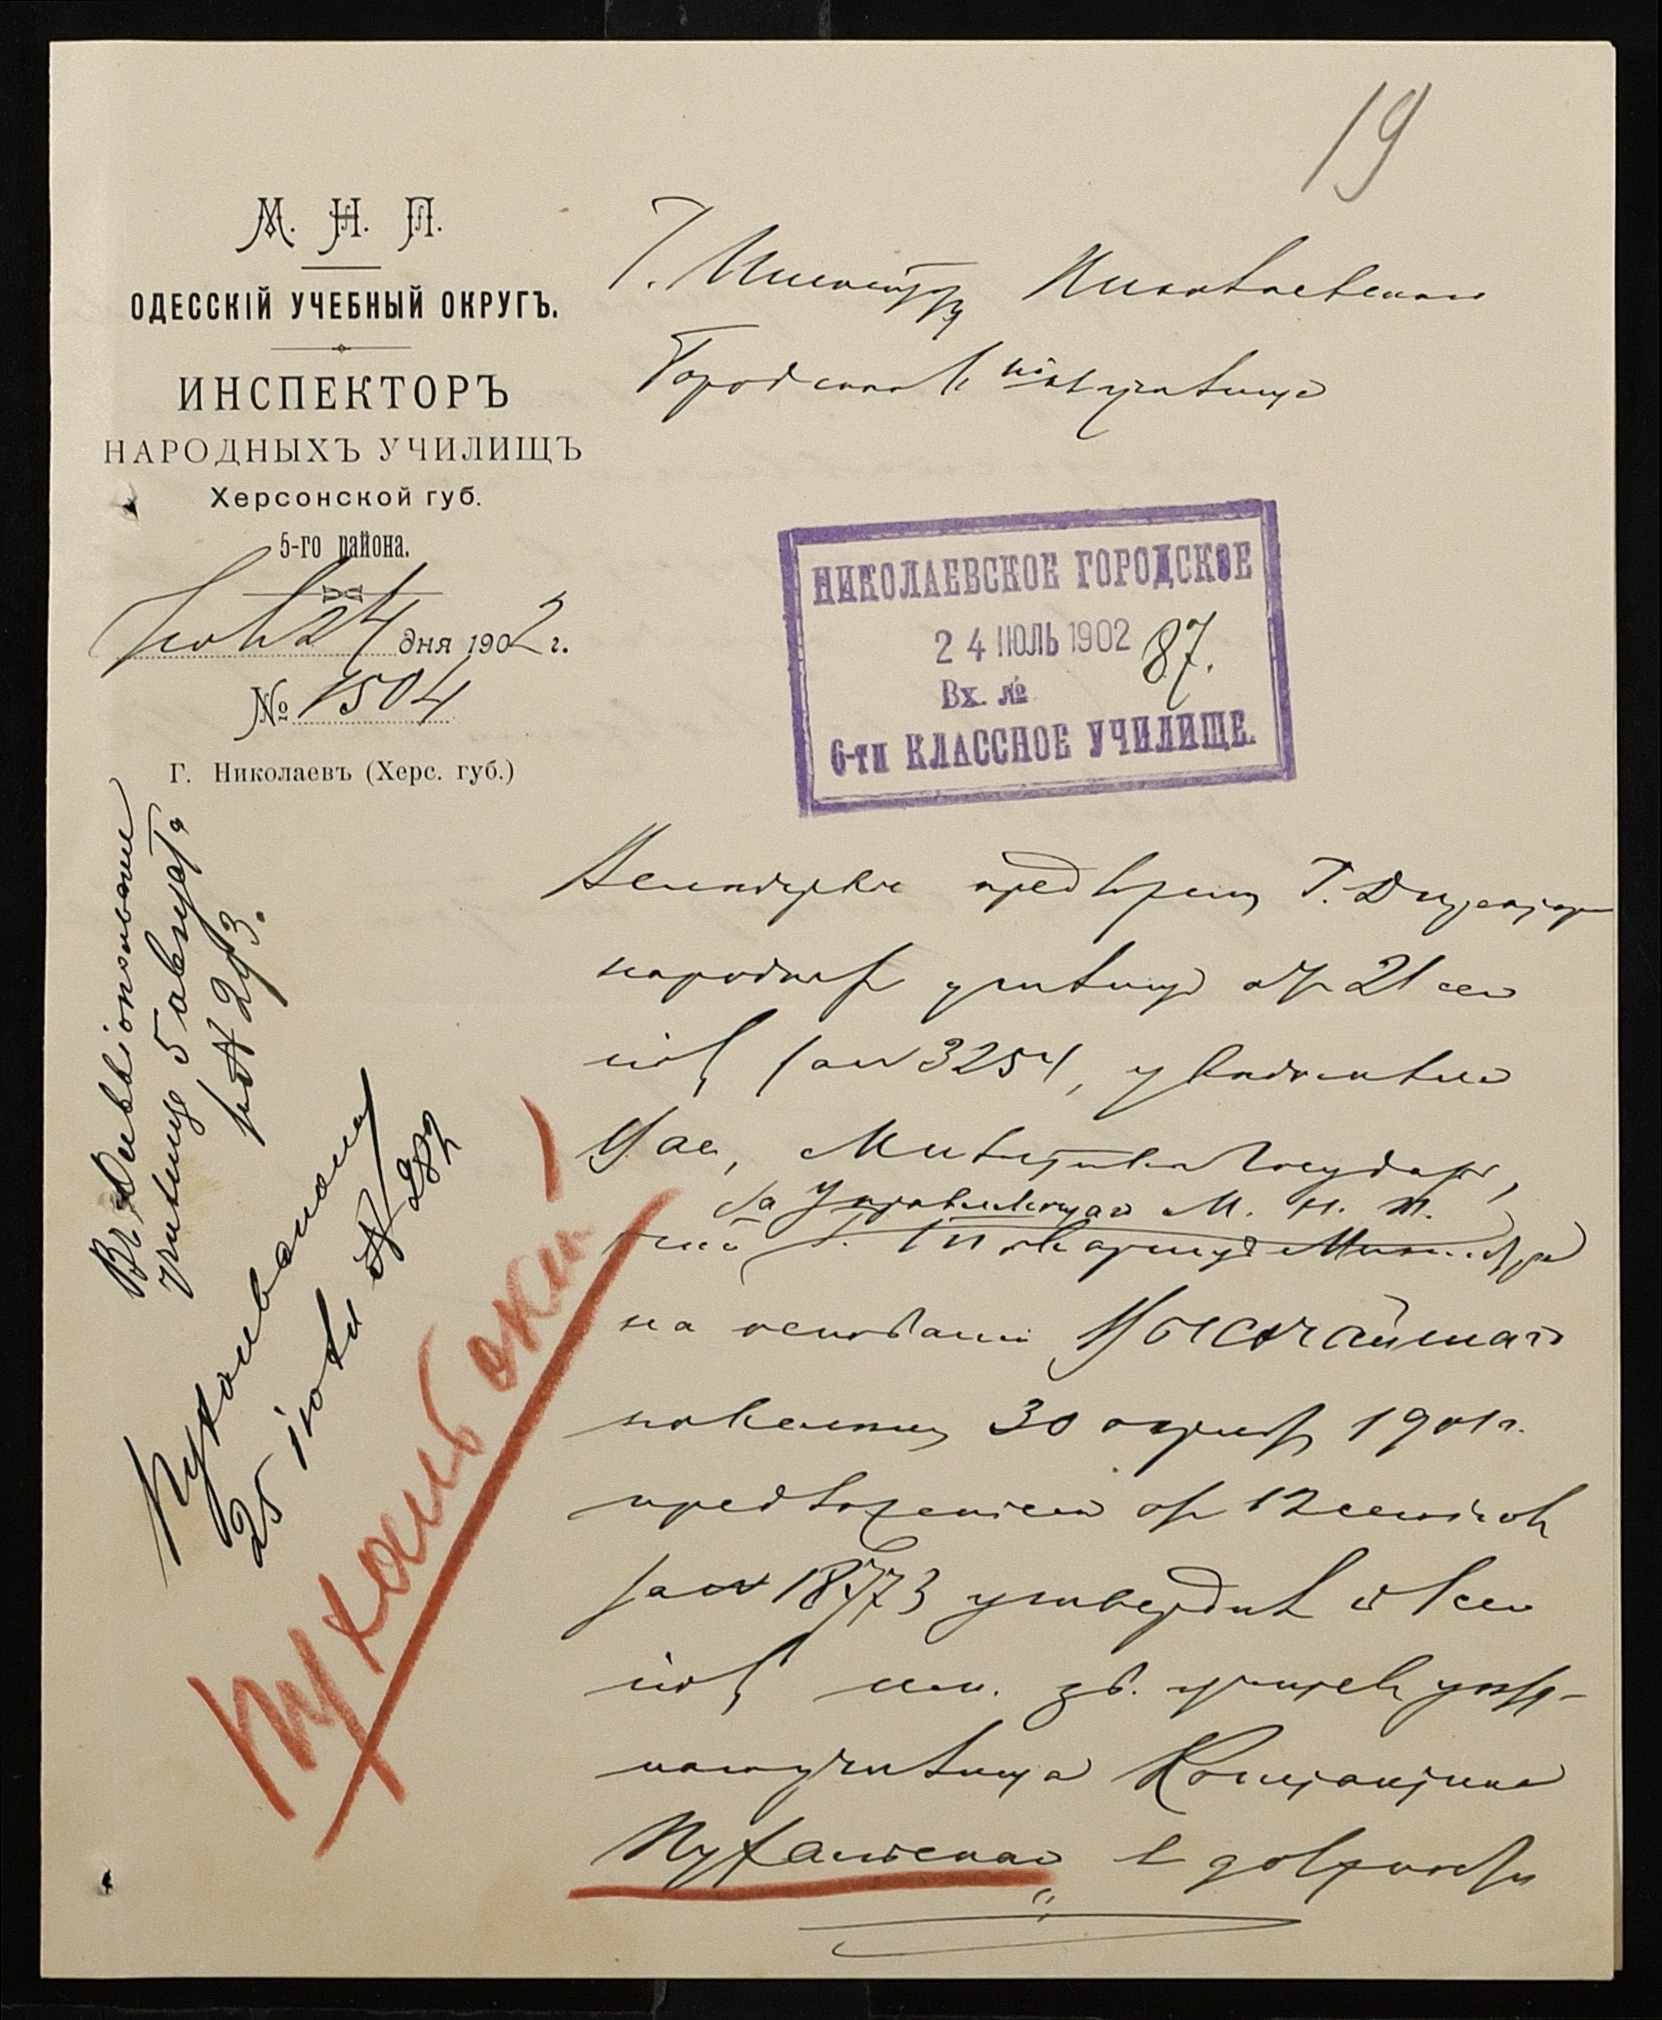 19
М. Н. П.
ОДЕССКІЙ УЧЕБНЫЙ ОКРУГЪ.
ИНСПЕКТОРЪ
НАРОДНЫХЪ УЧИЛИЩЪ
Херсонской губ.
5-го района.
Іюля 24 дня 1902 г.
№ 1504
Г. Николаевъ (Херс. губ.)
Г. Инспектору Николаевскаго
Городского 6 училища
НИКОЛАЕВСКОЕ ГОРОДСКОЕ
24 ІЮЛЬ 1902 87.
Вх. №
6-ти КЛАССНОЕ УЧИЛИЩЕ.
Вслѣдствіе предложенія Г. Директора
народныхъ училищъ отъ 21 сего
іюля за № 3254, увѣдомляю
Васъ, Милостивый Государь,
что Г. Товарищъ Министра
за Управляющаго М. Н. П.
на основаніи Высочайшаго
повелѣнія 30 1901 г.
предложеніемъ отъ 12 сего іюля
за № 18773 утвердилъ съ 1 сего
іюля училища Константина
Пухальскаго въ должности
Пухальскому
25 іюля № 282
училище 5 августа
за № 293.
Пухальский